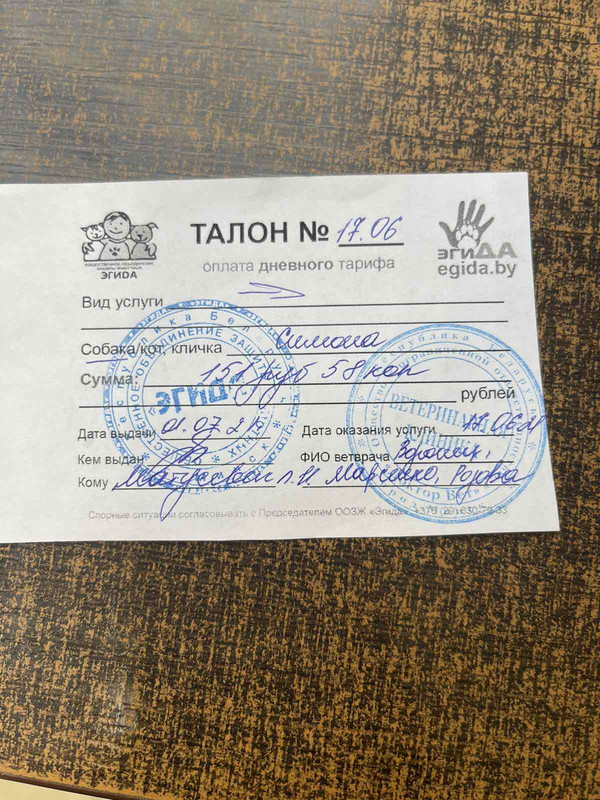 ТАЛОН № 17.06
оплата дневного тарифа
ОБЩЕСТВЕННОЕ ОБЪЕДИНЕНИЕ
ЗАЩИТЫ ЖИВОТНЫХ
ЭГИДА
ЭГИДА
egida.by
Вид услуги
Собака/кот, кличка Симона
Сумма: 151 руб 58 коп
рублей
Дата выдачи 01.07.21 Дата оказания услуги 17.06.21
Кем выдан ФИО ветврача
Кому Матусевич Л.И. Марченко,
Спорные ситуации согласовывать с Председателем ООЗЖ «Эгида»
Республика Беларусь
ОБЩЕСТВЕННОЕ ОБЪЕДИНЕНИЕ ЗАЩИТЫ
"ЭГИДА"
Республика Беларусь
ВЕТЕРИНАРНАЯ
КЛИНИКА